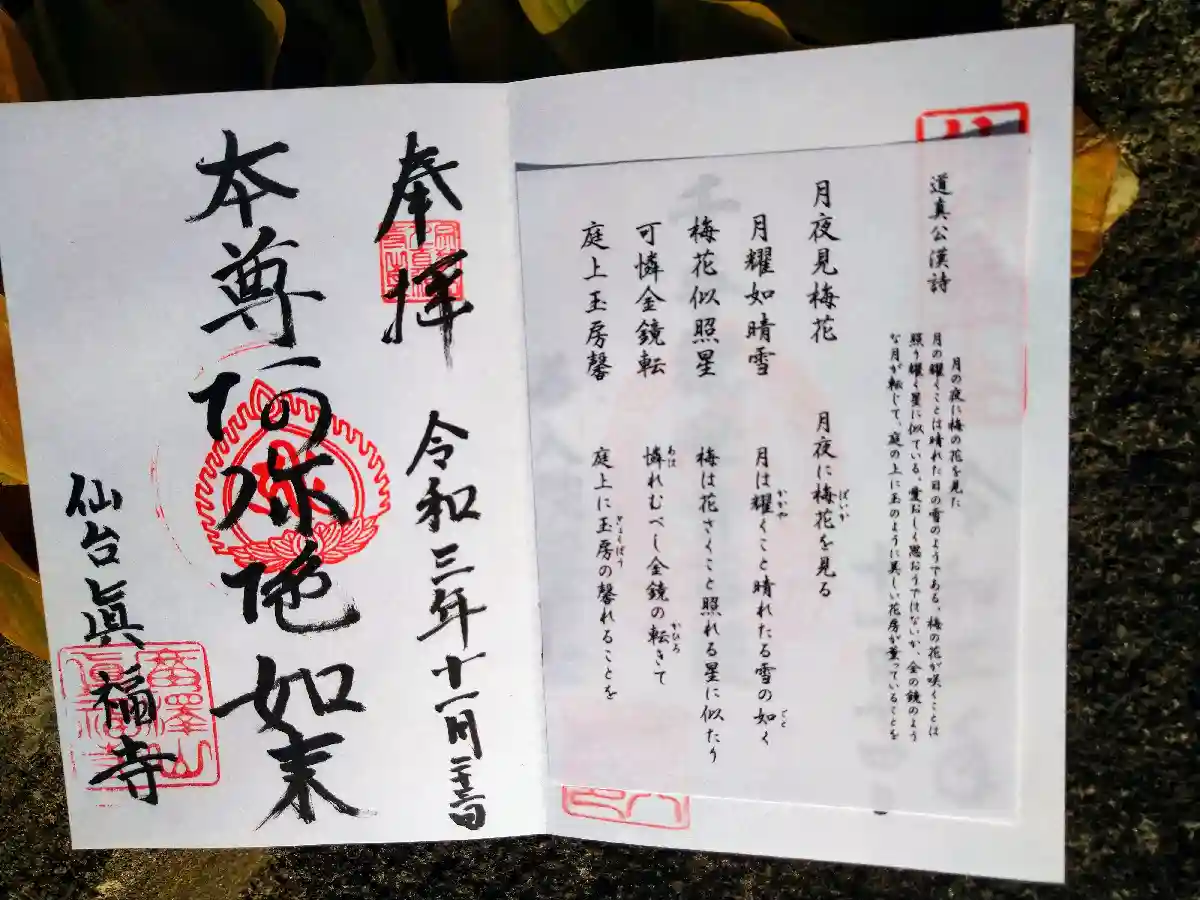 道真公漢詩
月の夜に梅の花を見た
月の耀くことは晴れた日の雪のようである、梅の花が咲くことは
照り耀く星に似ている。愛おしく思おうではないか、金の鏡のよう
な月が転じて、庭の上に玉のように美しい花房が薫っていることを
月夜見梅花 月夜に梅花を見る
月耀如晴雪 月は耀くこと晴れたる雪の如く
梅花似照星 梅は花さくこと照れる星に似たり
可憐金鏡転 憐れむべし金鏡の転きて
庭上玉房馨 庭上に玉房の馨れることを
奉拝 令和三年十一月二十三日
本尊阿弥陀如来
仙台眞福寺
廣澤山
眞福寺